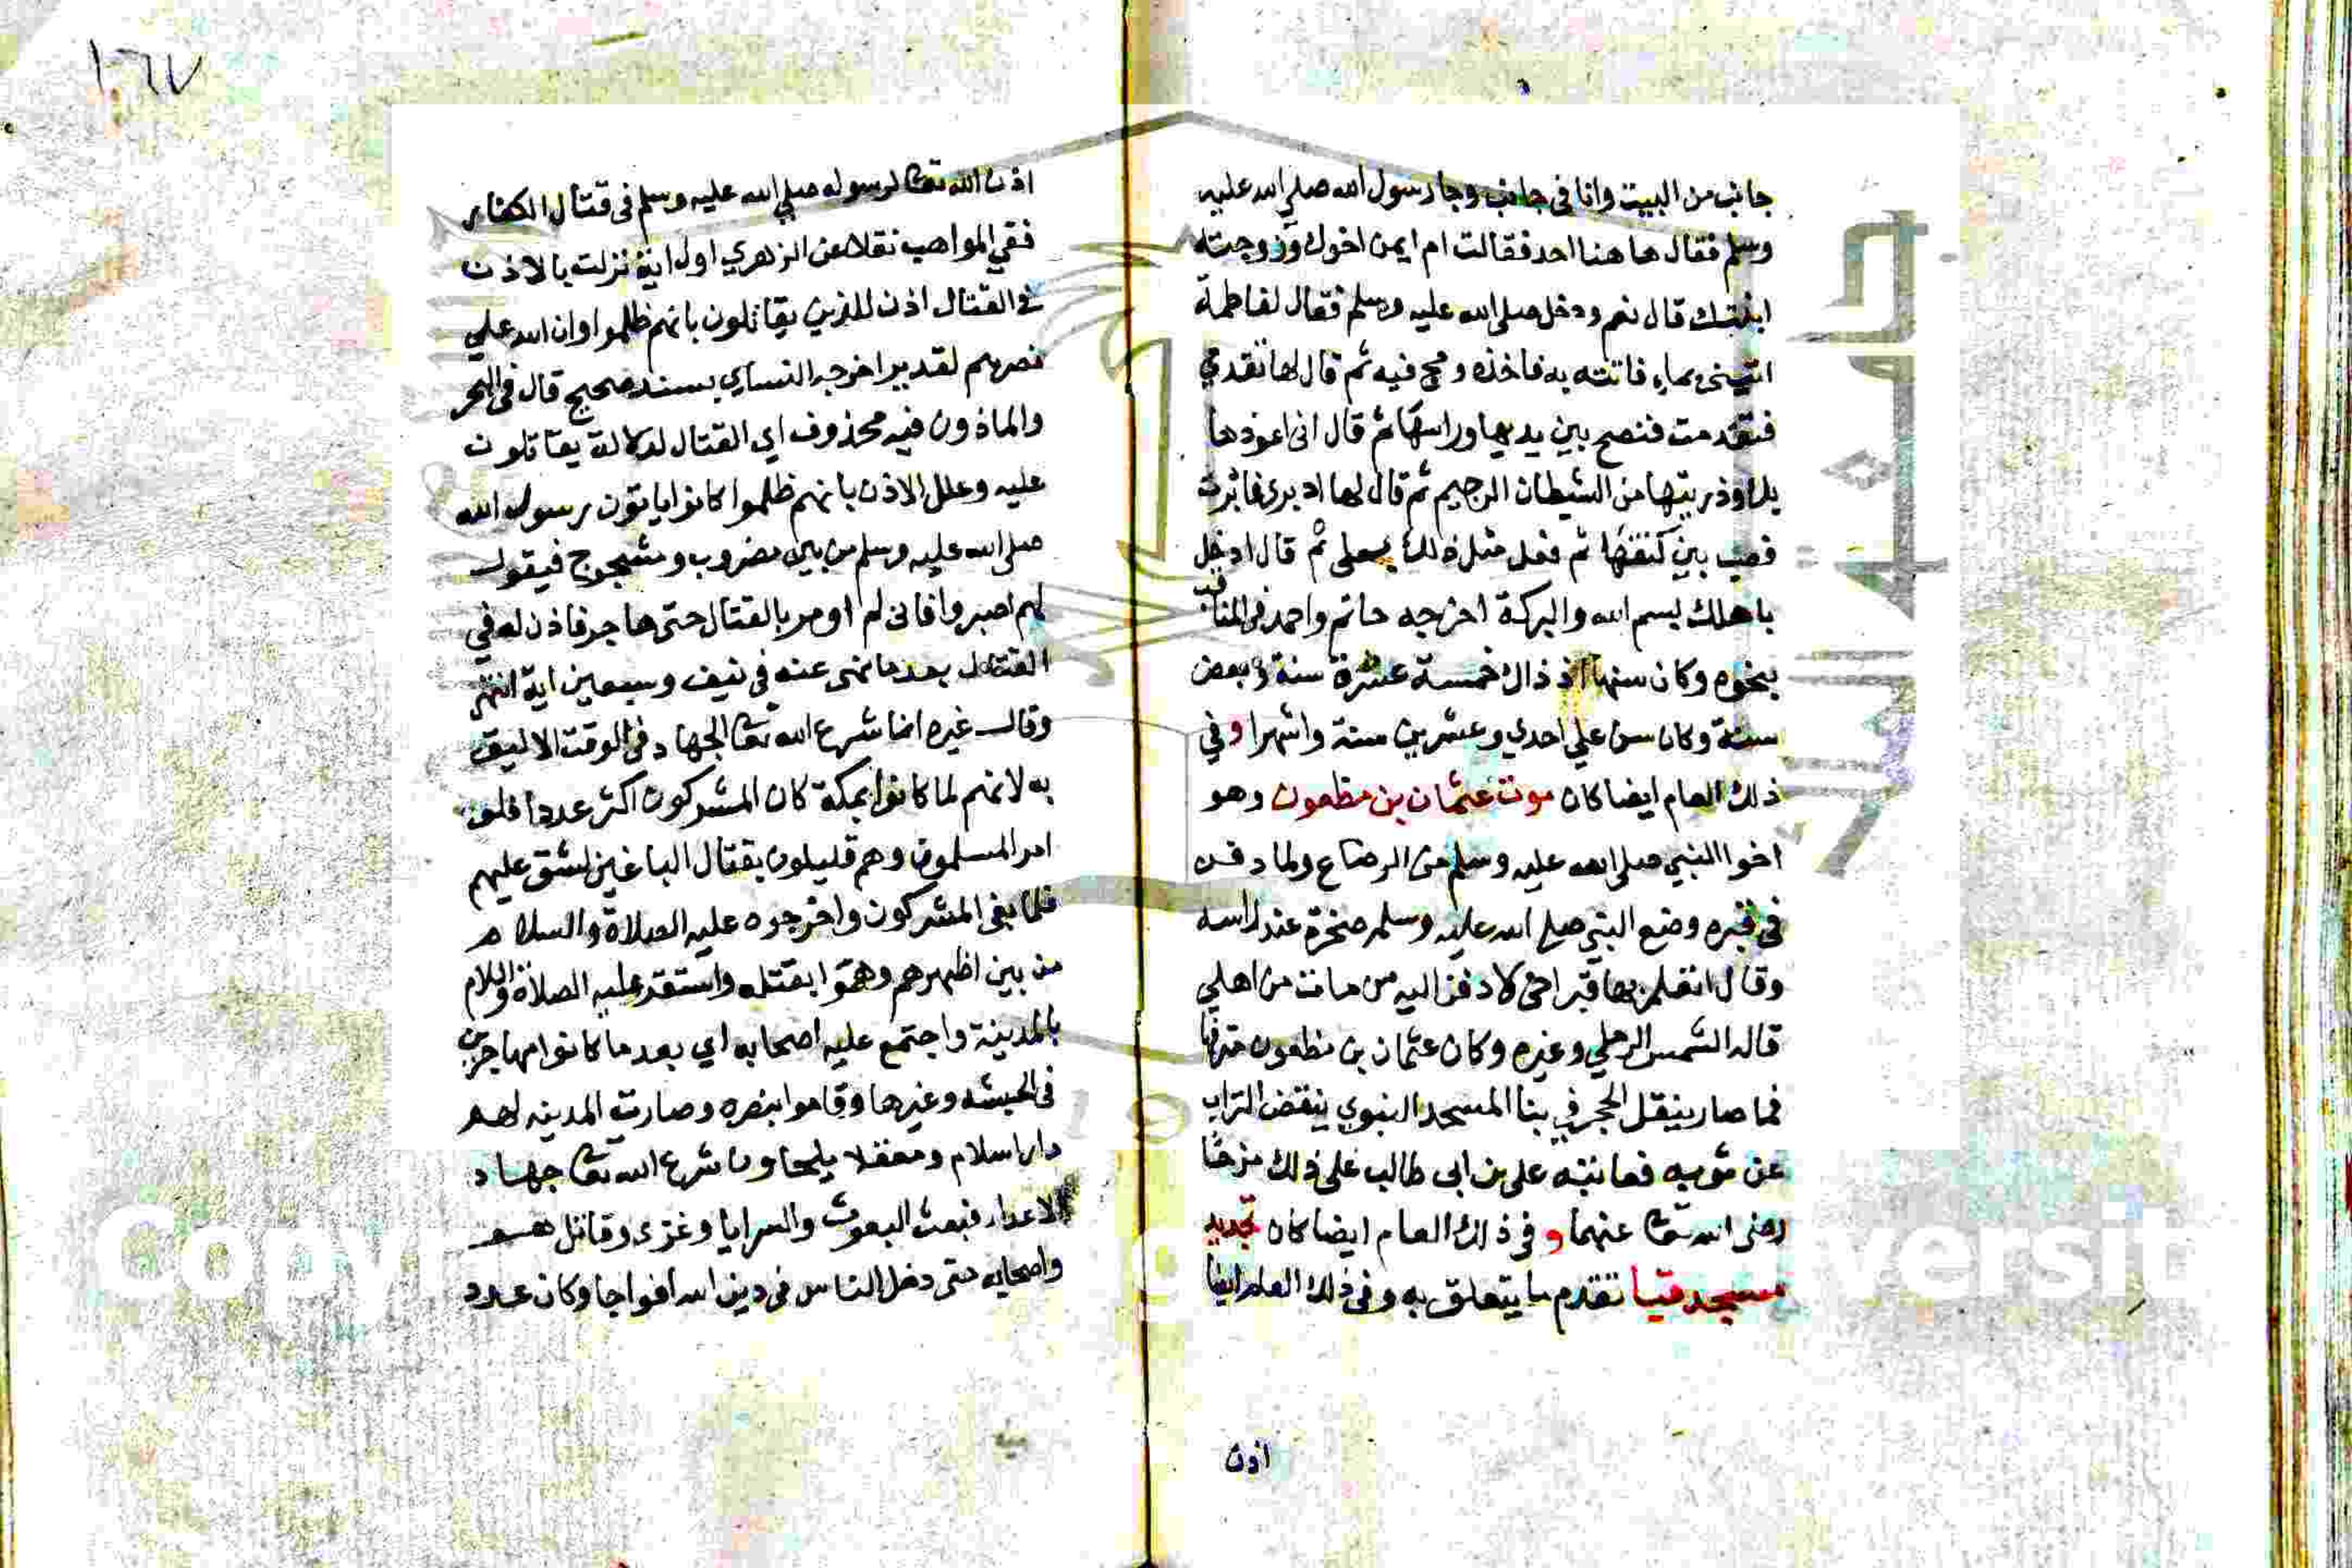 جانب من البيت وانا في جانب وجا رسول الله صلي الله عليه
وسلم فقال ها هنا احد فقالت ام ايمن اخوك وزوجته
ابنتك قال نعم ودخل صلى الله عليه وسلم فقال لفاطمة
ائتيني بماء فاتته به فاخذه ومج فيه ثم قال لها تقدمي
فتقدمت فنضح بين يديها وراسها ثم قال اني اعوذها
بك وذريتها من الشيطان الرجيم ثم قال لها ادبري فادبرت
فصب بين كتفها ثم فعل مثل ذلك بعلى ثم قال ادخل
باهلك بسم الله والبركة اخرجه حاتم واحمد في المناقب
بنحوه وكان سنها اذ ذاك خمسة عشرة سنة وبعض
سنة وكان سن علي احدي وعشرين سنة واشهرا وفي
ذلك العام ايضا كان موت عثمان بن مظعون وهو
اخوا النبي صلى الله عليه وسلم من الرضاع ولما دفن
في قبره وضع النبي صلى الله عليه وسلم صخرة عند راسه
وقال اتعلم بها قبر اخي لادفن اليه من مات من اهلي
قاله الشمس الرملي وغيره وكان عثمان بن مظعون مترفها
فما صار ينقل الحجر في بنا المسجد النبوي ينفض التراب
عن ثوبه فعاتبه على بن ابى طالب على ذلك مزحا
رضى الله تعا عنهما وفى ذلك العام ايضا كان تجديد
مسجد قبا تقدم ما يتعلق به وفى ذلك العام ايضا
اذن
١٦٧
اذن الله تعا لرسوله صلي الله عليه وسلم في قتال الكفار
ففي المواهب نقلا عن الزهري اول اية نزلت بالاذن
في القتال اذن للذين يقاتلون بانهم ظلموا وان الله علي
نصرهم لقدير اخرجه النساي بسند صحيح قال في البحر
والماذون فيه محذوف اي القتال لدلالة يقاتلون
عليه وعلل الاذن بانهم ظلموا كانوا ياتون رسول الله
صلى الله عليه وسلم من بين مضروب ومشجوج فيقول
لهم اصبروا فانى لم اومر بالقتال حتى هاجر فاذن له في
القتال بعد ما نهى عنه في نيف وسبعين اية انتهى
وقال غيره انما شرع الله تعا الجهاد في الوقت الاليق
به لانهم لما كانوا بمكة كان المشركون اكثر عددا فلو
امر المسلمون وهم قليلون بقتال الباغين لشق عليهم
فلما بغى المشركون واخرجوه عليه الصلاة والسلام
من بين اظهرهم وهموا بقتله واستقر عليه الصلاة والسلام
بالمدينة واجتمع عليه اصحابه اي بعد ما كانوا مهاجرين
في الحبشه وغيرها وقاموا بنصره وصارت المدينه لهم
دار اسلام ومعقلا يلجاون شرع الله تعا جهاد
الاعداء فبعث البعوث والسرايا وغزى وقاتل هو
واصحابه حتى دخل الناس في دين الله افواجا وكان عدد